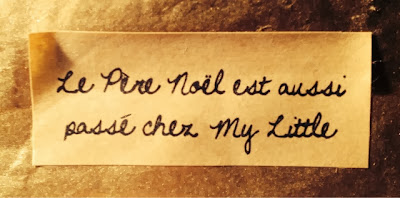 Le Père Noël est aussi
passé chez My Little